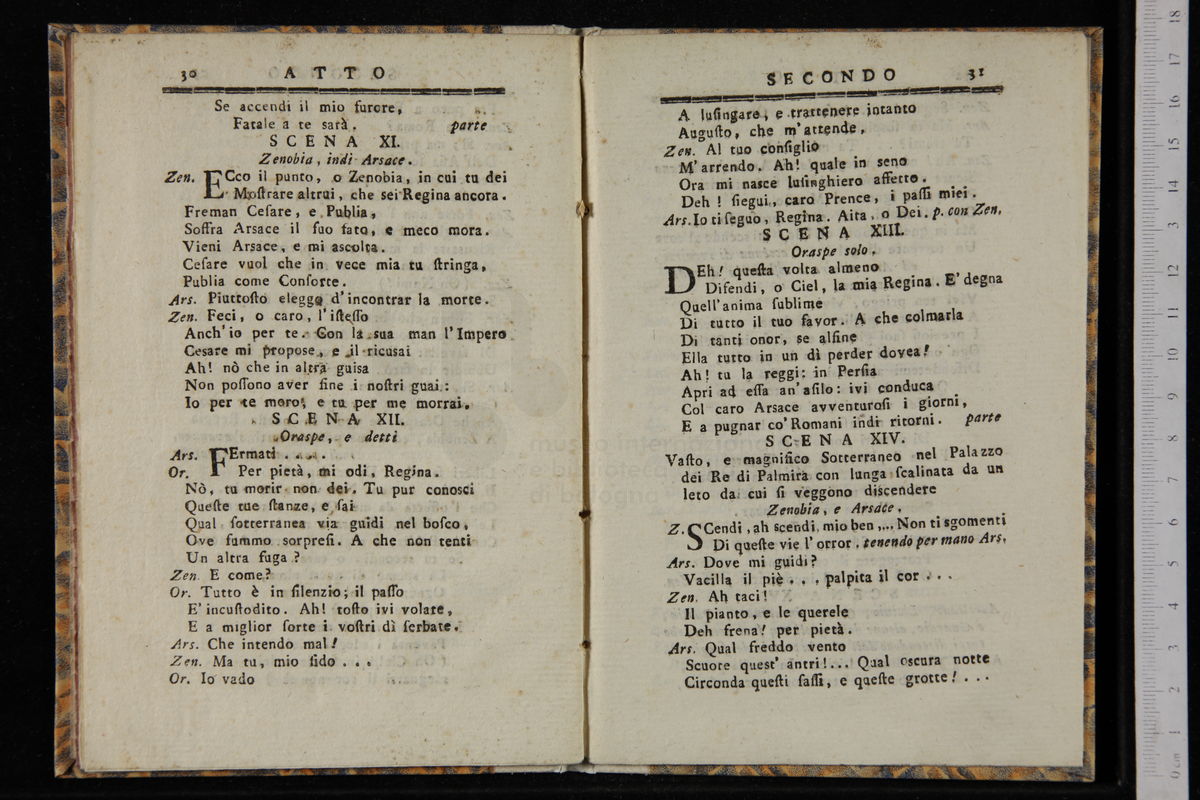 30 ATTO
Se accendi il mio furore,
Fatale a te sarà. parte
SCENA XI.
Zenobia, indi Arsace.
Zen. ECco il punto, o Zenobia, in cui tu dei
Moſtrare altrui, che sei Regina ancora.
Freman Ceſare, e Publia,
Soffra Arsace il ſuo fato, e meco mora.
Vieni Arsace, e mi aſcolta.
Ceſare vuol che in vece mia tu ſtringa,
Publia come Conſorte.
Ars. Piuttoſto eleggo d'incontrar la morte.
Zen. Feci, o caro, l'iſteſſo
Anch'io per te. Con la sua man l'Impero
Cesare mi propose, e il ricusai
Ah! nò che in altra guisa
Non poſſono aver fine i noſtri guai:
Io per te moro, e tu per me morrai.
SCENA XII.
Oraspe, e detti
Ars. FErmati . . . . .
Or. Per pietà, mi odi, Regina.
Nò, tu morir non dei. Tu pur conosci
Queſte tue ſtanze, e ſai
Qual ſotterranea via guidi nel boſco,
Ove fummo sorpreſi. A che non tenti
Un altra fuga?
Zen. E come?
Or. Tutto è in ſilenzio; il paſſo
E' incuſtodito. Ah! toſto ivi volate,
E a miglior ſorte i voſtri dì ſerbate.
Ars. Che intendo mal!
Zen. Ma tu, mio fido . . .
Or. Io vado
SECONDO 31
A luſingare, e trattenere intanto
Auguſto, che m'attende,
Zen. Al tuo conſiglio
M'arrendo. Ah! quale in seno
Ora mi nasce luſinghiero affetto.
Deh! ſiegui, caro Prence, i paſſi miei.
Ars. Io ti ſeguo, Regina. Aita, o Dei. p. con Zen.
SCENA XIII.
Oraspe solo.
DEh! queſta volta almeno
Difendi, o Ciel, la mia Regina. E' degna
Quell'anima ſublime
Di tutto il tuo favor. A che colmarla
Di tanti onor, se alfine
Ella tutto in un dì perder dovea!
Ah! tu la reggi: in Perſia
Apri ad eſſa an'aſilo: ivi conduca
Col caro Arsace avventuroſi i giorni,
E a pugnar co' Romani indi ritorni. parte
SCENA XIV.
Vaſto, e magnifico Sotterraneo nel Palazzo
dei Re di Palmira con lunga ſcalinata da un
leto da cui ſi veggono discendere
Zenobia, e Arsace.
Z. SCendi, ah scendi, mio ben,... Non ti sgomenti
Di queſte vie l'orror. tenendo per mano Ars.
Ars. Dove mi guidi?
Vacilla il piè . . . palpita il cor . . .
Zen. Ah taci!
Il pianto, e le querele
Deh frena! per pietà.
Ars. Qual freddo vento
Scuote quest' antri!... Qual oscura notte
Circonda queſti ſaſſi, e queſte grotte! . . .
museo internazionale
biblioteca
di bologna